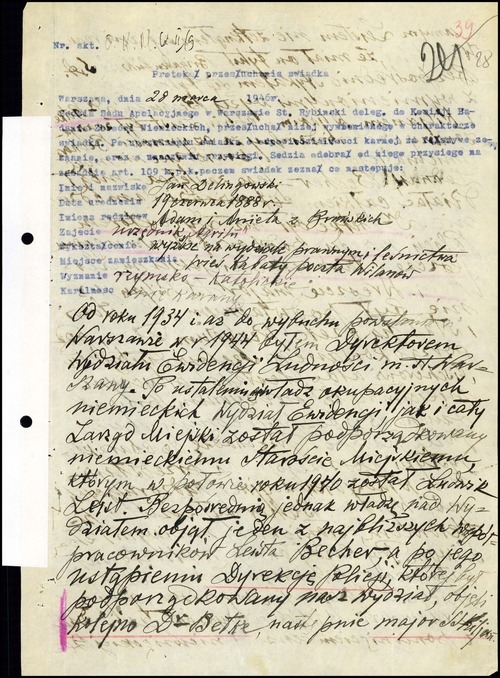 39
28
Nr. akt.
Protokół przesłuchania świadka
Warszawa, dnia 28 marca 1946r.
Sędzia Sądu Apelacyjnego w Warszawie St. Rybiński deleg. do Komisji Ba-
dania Zbrodni Niemieckich, przesłuchał niżej wymienionego w charakterze
świadka. Po
znanie, oraz o Sędzia odebrał od niego przysięgę na
zasadzie art. 109 k.p.k. poczem świadek zeznał co następuje:
Imię i nazwisko Jan Delingowski
Data urodzenia 19 czerwca 1888 r.
Imiona rodziców Adam i Aniela z
Zajęcie urzędnik „Agrilu”
Wykształcenie wyższe na wydziale prawnym i leśnictwa
Miejsce zamieszkania wieś Kabaty poczta Wilanów
Wyznanie rzymsko-katolickie
Karalność
Od roku 1934 i aż do wybuchu powstania w
Warszawie w r 1944 byłem Dyrektorem
Wydziału Ewidencji Ludności m. St War-
szawy. Po ustaleniu władz okupacyjnych
niemieckich Wydział Ewidencji jak i cały
Zarząd Miejski został podporządkowany
niemieckiemu Staroście Miejskiemu,
którym w połowie roku 1940 został Ludwik
Leist. Bezpośrednią jednak władzę nad Wy-
działem objął jeden z najbliższych współ-
pracowników Leista Becher a po jego
ustąpieniu Dyrekcja Policji, której był
podporządkowany nasz wydział, objęli
kolejno Dr Betke, następnie major